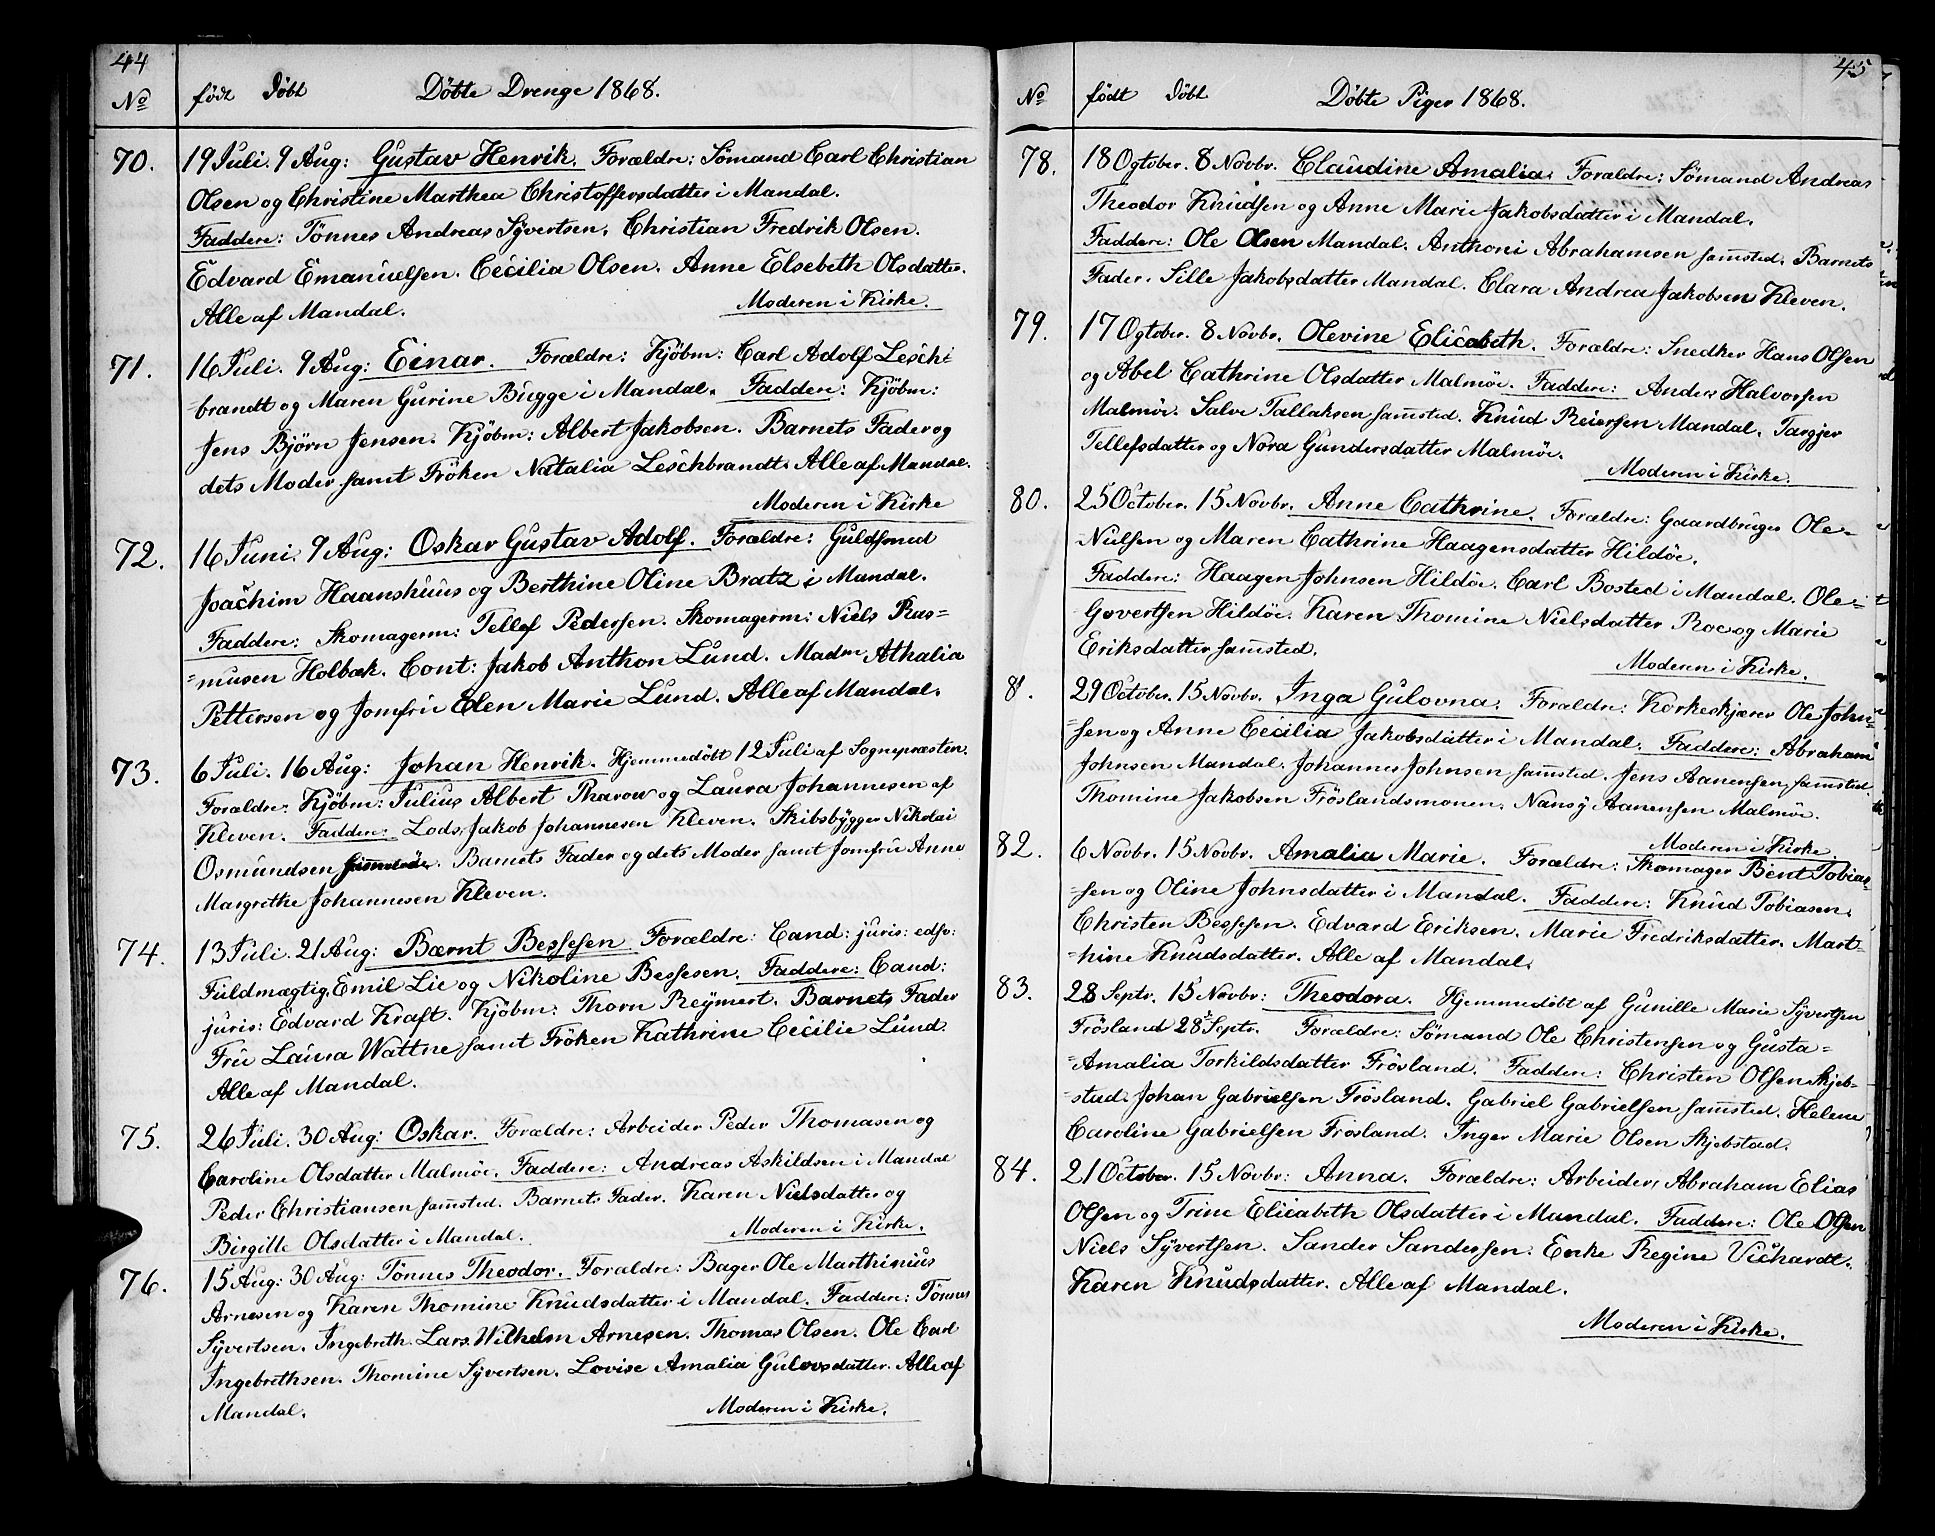 44
No födt Döbt Döbte Drenge 1868.
70. 19 Juli. 9 Aug: Gustav Henrik. Forældre: Sömand Carl Christian
Olsen og Christine Marthea Christoffersdatter i Mandal.
Faddere: Tönnes Andreas Syvertsen. Christian Fredrik Olsen.
Edvard Emanuelsen. Cecilia Olsen. Anne Elsebeth Olsdatter.
Alle af Mandal. Moderen i Kirke.
71. 16 Juli. 9 Aug: Einar. Forældre: Kjöbm: Carl Adolf Lesch=
=brandt og Maren Gurine Bugge i Mandal. Faddere: Kjöbm:
Jens Bjørn Jensen. Kjöbm: Albert Jakobsen. Barnets Fader og
dets Moder samt Fröken Natalia Leschbrandt. Alle af Mandal.
Moderen i Kirke
72. 16 Juni. 9 Aug: Oskar Gustav Adolf. Forældre: Guldsmed
Joachim Haanshuus og Berthine Oline Bratz i Mandal.
Faddere: Skomagerm: Tellef Pedersen. Skomagerm: Niels Ras=
=musen Holbæk. Cont: Jakob Anthon Lund. Madm Athalia
Pettersen og Jomfru Elen Marie Lund. Alle af Mandal.
73. 6 Juli. 16 Aug: Johan Henrik. Hjemmedöbt 12 Juli af Sognepræsten.
Forældre: Kjöbm: Julius Albert Tharow og Laura Johannesen af
Kleven. Faddere: Lods Jakob Johannesen Kleven. Skibsbygger Nikolai
Osmundsen. Barnets Fader og dets Moder samt Jomfru Anne
Margrethe Johannesen Kleven.
74. 13 Juli. 21 Aug: Bærnt Bessesen. Forældre: Cand: juris: edsv:
Fuldmægtig. Emil Lie og Nikoline Bessesen. Faddere: Cand:
juris: Edvard Kraft. Kjöbm: Thorn Reymert. Barnets Fader
Fru Laura Wattne samt Fröken Kathrine Cecilie Lund.
Alle af Mandal.
75. 26 Juli. 30 Aug: Oskar. Forældre: Arbeider Peder Thomasen og
Caroline Olsdatter Malmöe. Faddere: Andreas Askildsen i Mandal
Peder Christiansen samsted. Barnets Fader. Karen Nielsdatter og
Birgitte Olsdatter i Mandal. Moderen i Kirke.
76. 15 Aug: 30 Aug: Tönnes Theodor. Forældre: Bager Ole Marthinius
Arnesen og Karen Thomine Knudsdatter i Mandal. Faddere: Tönnes
Syvertsen. Ingebreth Lars Wilhelm Arnesen. Thomas Olsen. Ole Carl
Ingebrethsen. Thomine Syvertsen. Lovise Amalia Gulovsdatter. Alle af
Mandal. Moderen i Kirke.
45
No födt Döbt Döbte Piger 1868.
78. 18 Ogtober. 8 Novbr. Claudine Amalia. Forældre: Sömand Andreas
Theodor Knudsen og Anne Marie Jakobsdatter i Mandal.
Faddere: Ole Olsen Mandal. Anthoni Abrahamsen samsted. Barnets
Fader. Sille Jakobsdatter Mandal. Clara Andrea Jakobsen Kleven.
79. 17 Ogtober. 8 Novbr. Olevine Elicabeth. Forældre: Snedker Hans Olsen
og Abel Cathrine Olsdatter Malmöe. Faddere: Anders Halvorsen
Malmöe. Salve Tallaksen samsted. Knud Reiersen Mandal. Targjer
Tellefsdatter og Nora Gundersdatter Malmöe.
Moderen i Kirke.
80. 25 October. 15 Novbr. Anne Cathrine. Forældre: Gaardbruger Ole
Nielsen og Maren Cathrine Haagensdatter Hildöe.
Faddere: Haagen Johnsen Hildöe. Carl Bosted i Mandal. Ole
Govertsen Hildöe. Karen Thomine Nielsdatter Roe og Marie
Eriksdatter samsted.
Moderen i Kirke.
81. 29 October. 15 Novbr. Inga Gulovna. Forældre: Korkeskjærer Ole John=
=sen og Anne Cecilia Jakobsdatter i Mandal. Faddere: Abraham
Johnsen Mandal. Johannes Johnsen samsted. Jens Aanensen samsted.
Thomine Jakobsen Fröslandsmonen. Nansy Aanensen Malmöe.
Moderen i Kirke
82. 6 Novbr. 15 Novbr. Amalia Marie. Forældre: Skomager Bent Tobias=
=sen og Oline Johnsdatter i Mandal. Faddere: Knud Tobiasen.
Christen Bessesen. Edvard Eriksen. Marie Fredriksdatter. Mart=
=hine Knudsdatter. Alle af Mandal.
83. 28 Septr. 15 Novbr: Theodora. Hjemmedöbt af Gunille Marie Syvertsen
Frösland 28 Septr. Forældre: Sömand Ole Christensen og Gusta=
=Amalia Torkildsdatter Frösland. Faddere: Christen Olsen Skjeb=
=stad. Johan Gabrielsen Frösland. Gabriel Gabrielsen samsted. Helene
Caroline Gabrielsen Frösland. Inger Marie Olsen Skjebstad.
84. 21 October. 15 Novbr: Anna. Forældre: Arbeider, Abraham Elias
Olsen og Trine Elicabeth Olsdatter i Mandal. Faddere: Ole Olsen
Niels Syvertsen. Sander Sandersen. Enke Regine Vichardt.
Karen Knudsdatter. Alle af Mandal.
Moderen i Kirke.